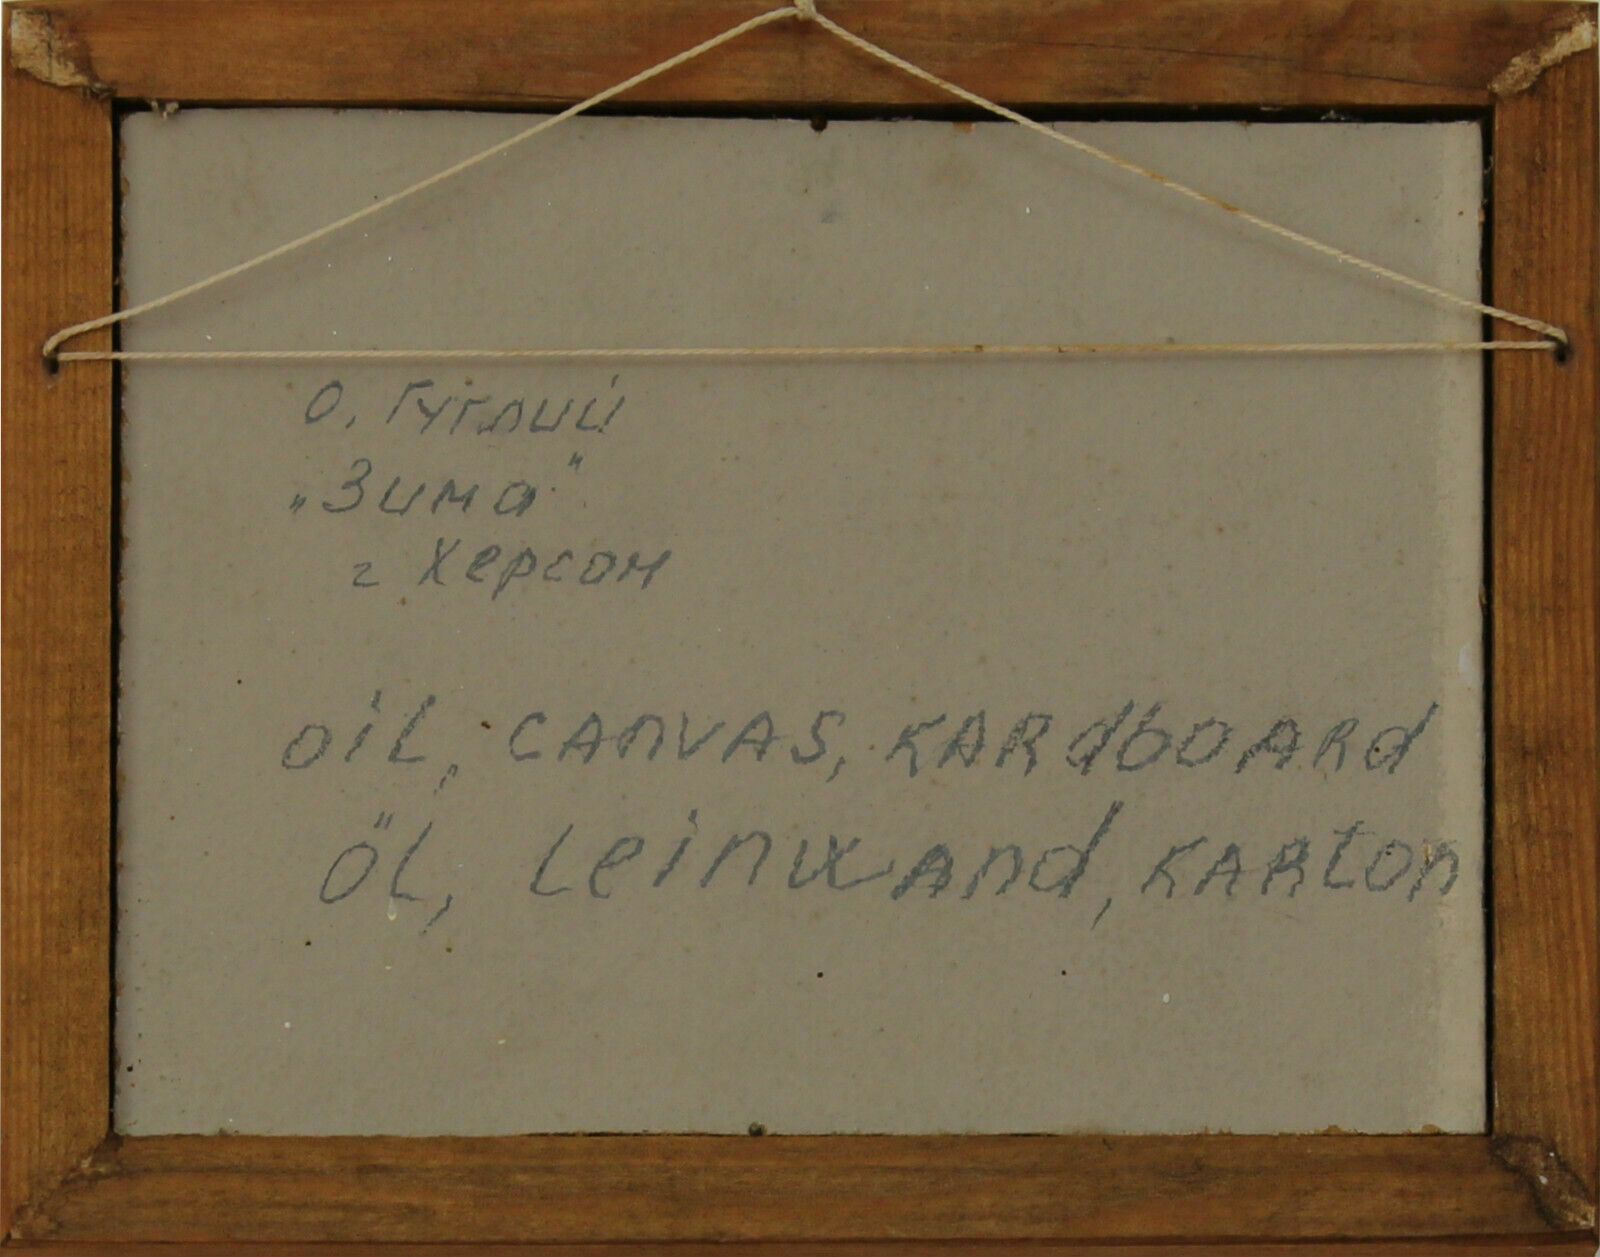 О. Гуглий
„Зима"
г Херсон
OiL, CANVAS, KARdbOARd
ÖL, LeiNWANd, KARtON